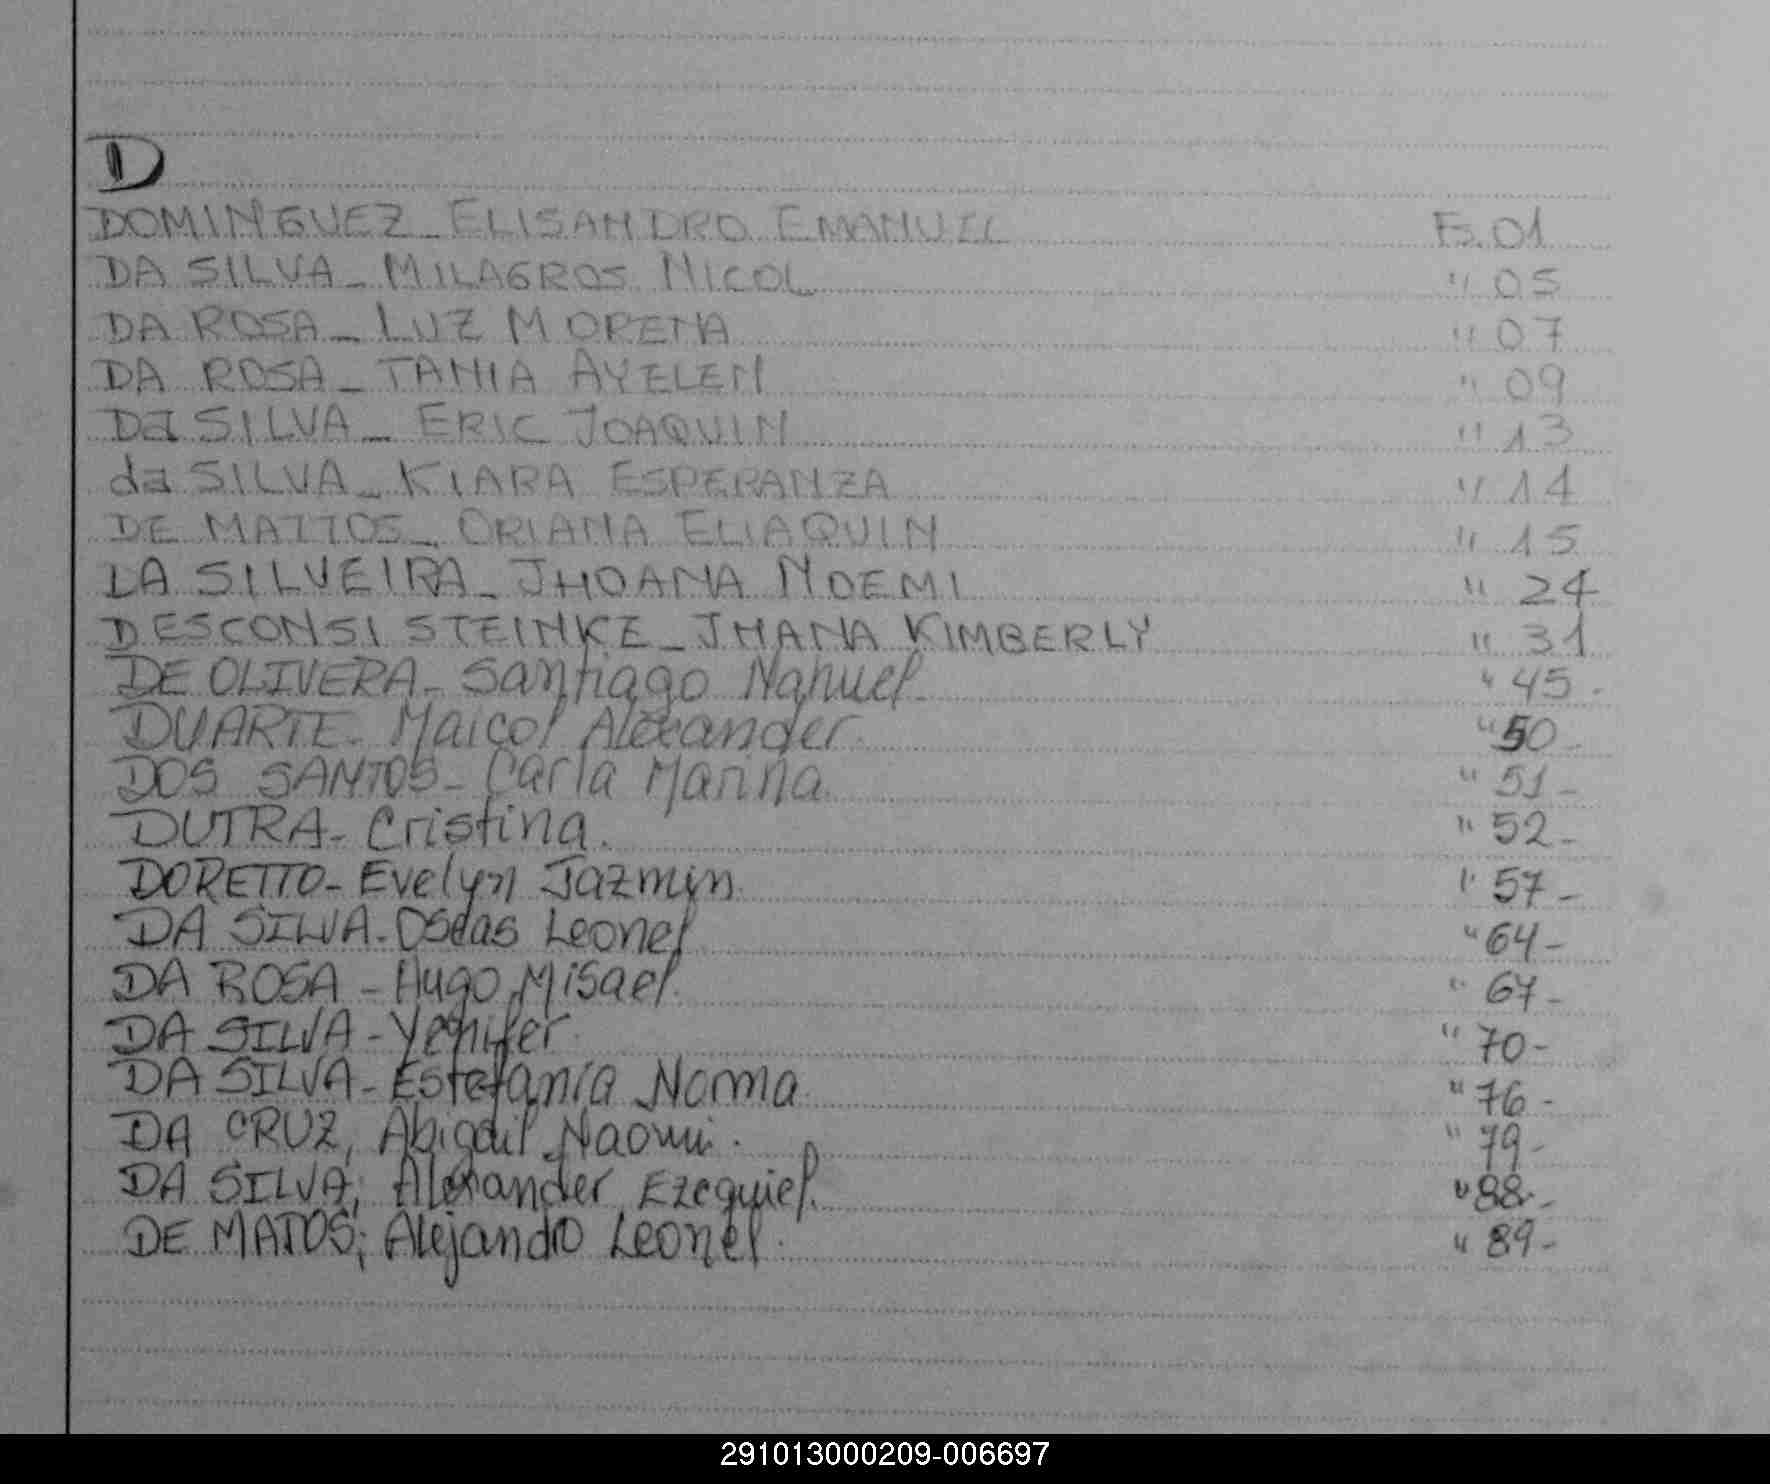 D
DOMINGUEZ_ ELISANDRO EMANUEL Fs. 01
DA SILVA_ MILAGROS NICOL " 05
DA ROSA_ LUZ MORENA " 07
DA ROSA_ TANIA AYELEN " 09
Da SILVA_ ERIC JOAQUIN " 13
da SILVA_ KIARA ESPERANZA " 14
DE MATTOS_ ORIANA ELIAQUIN " 15
DA SILVEIRA_ JHOANA NOEMI " 24
DESCONSI STEINKE_ JHANA KIMBERLY " 31
DE OLIVERA_ Santiago Nahuel " 45-
DUARTE- Maicol Alexander. " 50-
DOS SANTOS- Carla Marina " 51-
DUTRA- Cristina. " 52-
DORETTO- Evelyn Jazmin. " 57-
DA SILVA- Oseas Leonel " 64-
DA ROSA - Hugo Misael. " 67-
DA SILVA - Yenifer. " 70-
DA SILVA - Estefanía Norma. " 76-
DA CRUZ, Abigail Naomi. " 79-
DA SILVA; Alexander Ezequiel. " 88-
DE MATOS; Alejandro Leonel. " 89-
291013000209-006697